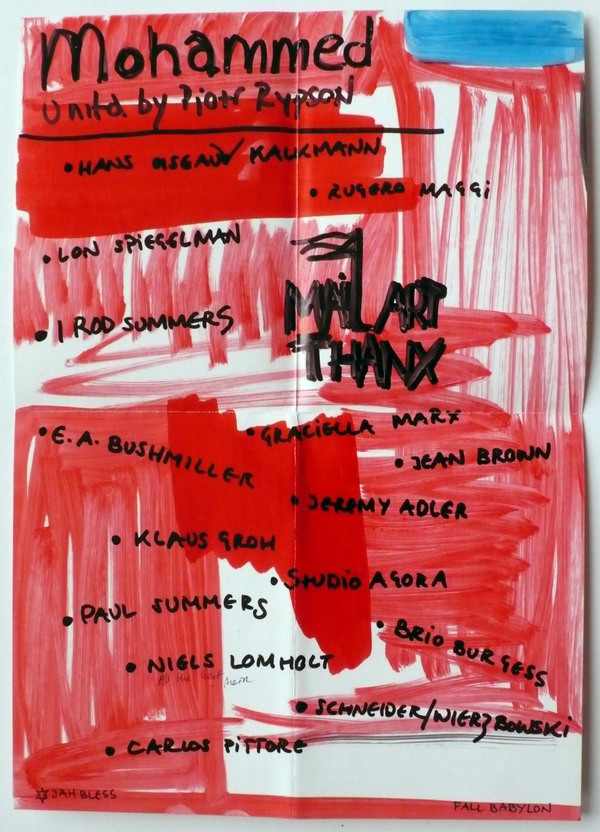 Mohammed
United by Piotr Rypson
• HANS KALKMANN
• RUGERO MAGGi
• LON SPIEGELMAN
MAiL ART
THANX
• I ROD SUMMERS
• GRACIELLA MARX
• E. A. BUSHMILLER
• JEAN BROWN
• JEREMY ADLER
• KLAUS GROH
• STUDiO AGORA
• PAUL SUMMERS
• BRiO BURGESS
• NiELS LOMHOLT
All the
• SCHNEIDER/WIERZBOWSKi
• CARLOS PiTTORE
✡ JAH BLESS
FALL BABYLON